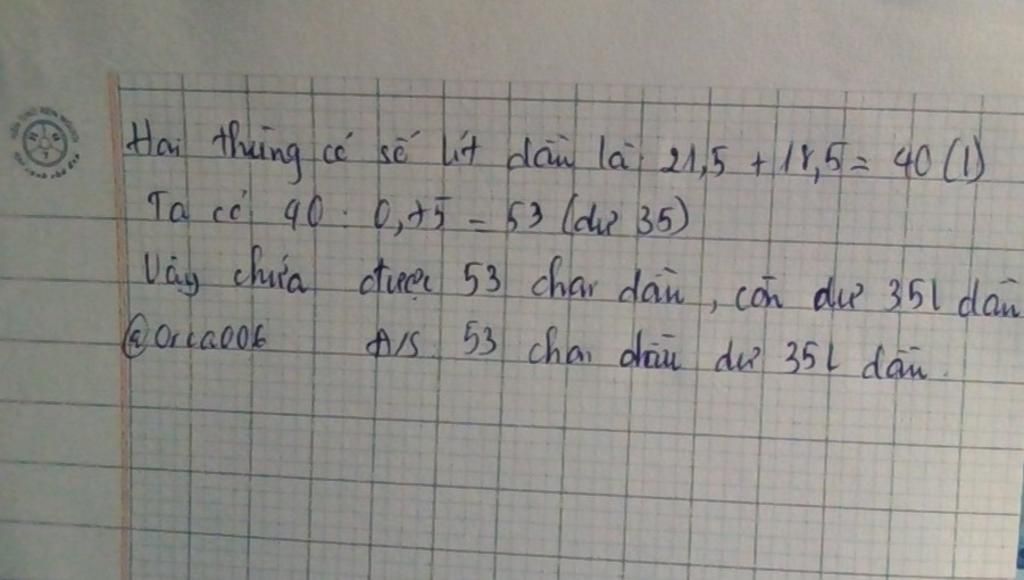 Hai thùng có số lít dầu là 21,5 + 18,5 = 40 (l)
Ta có 40 : 0,75 = 53 (dư 35)
Vậy chứa được 53 chai dầu, còn dư 35l dầu
@Orca006 Đ/S 53 chai dầu dư 35l dầu.